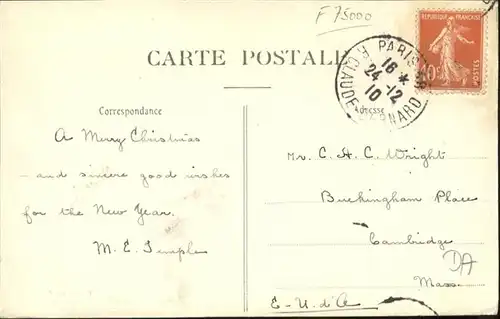 F 75000
CARTE POSTALE
REPUBLIQUE FRANÇAISE
10c
POSTES
PARIS
R. CLAUDE BERNARD
16 *
24 -12
10
Correspondance
Adresse
A Merry Christmas
and sincere good wishes
for the New Year.
M. E. Temple
Mr. C. H. C. Wright
Buckingham Place
Cambridge
Mass
E-U. d'A
DA